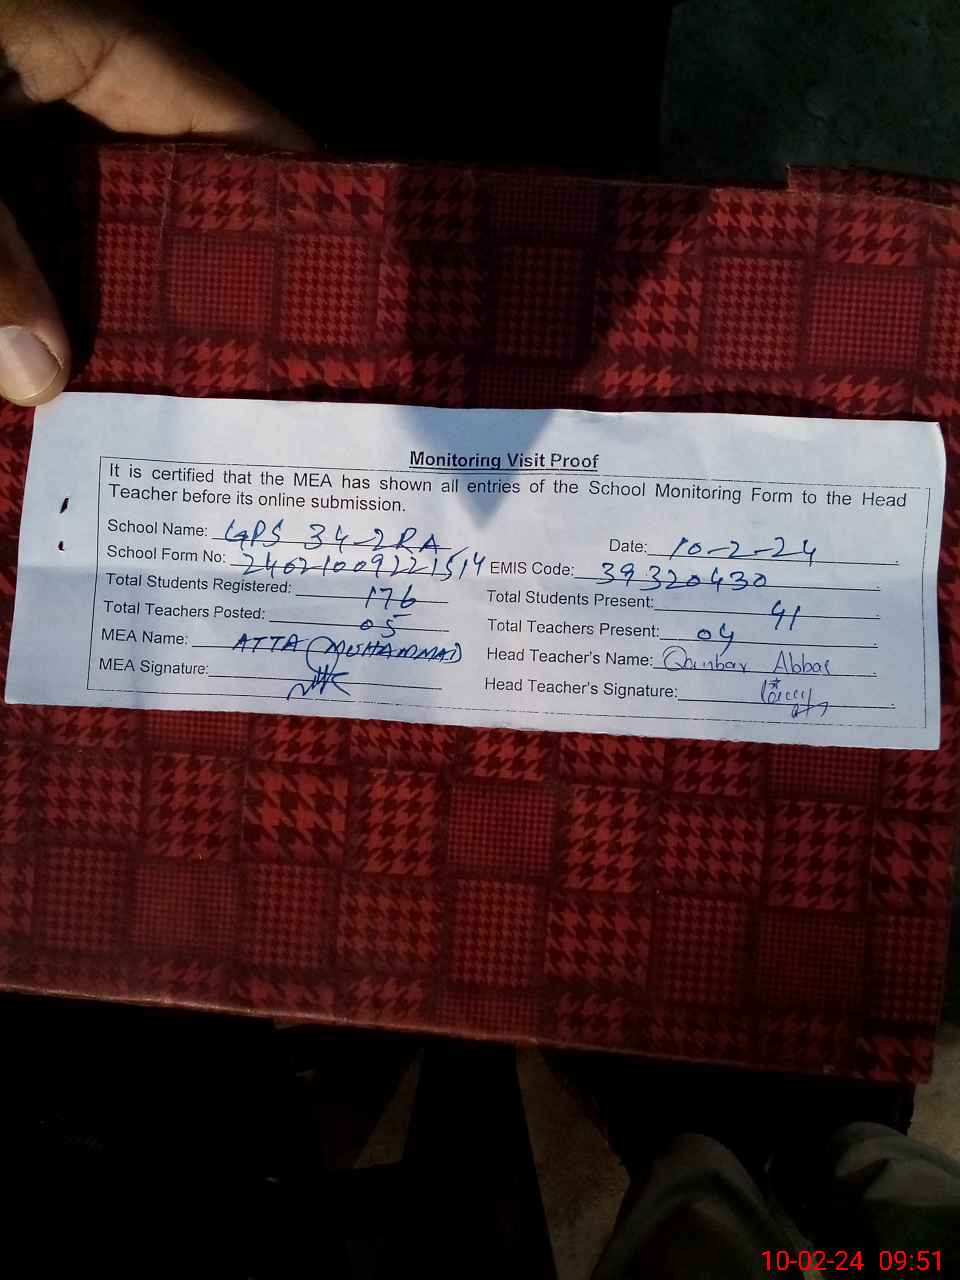 Monitoring Visit Proof
It is certified that the MEA has shown all entries of the School Monitoring Form to the Head
Teacher before its online submission.
School Name: GPS 34-2RA Date: 10-2-24
School Form No: 24021009221514 EMIS Code: 39320430
Total Students Registered: 176 Total Students Present: 41
Total Teachers Posted: 05 Total Teachers Present: 04
MEA Name: ATTA MUHAMMAD Head Teacher's Name: Qainbar Abbas
MEA Signature: Head Teacher's Signature:
10-02-24 09:51